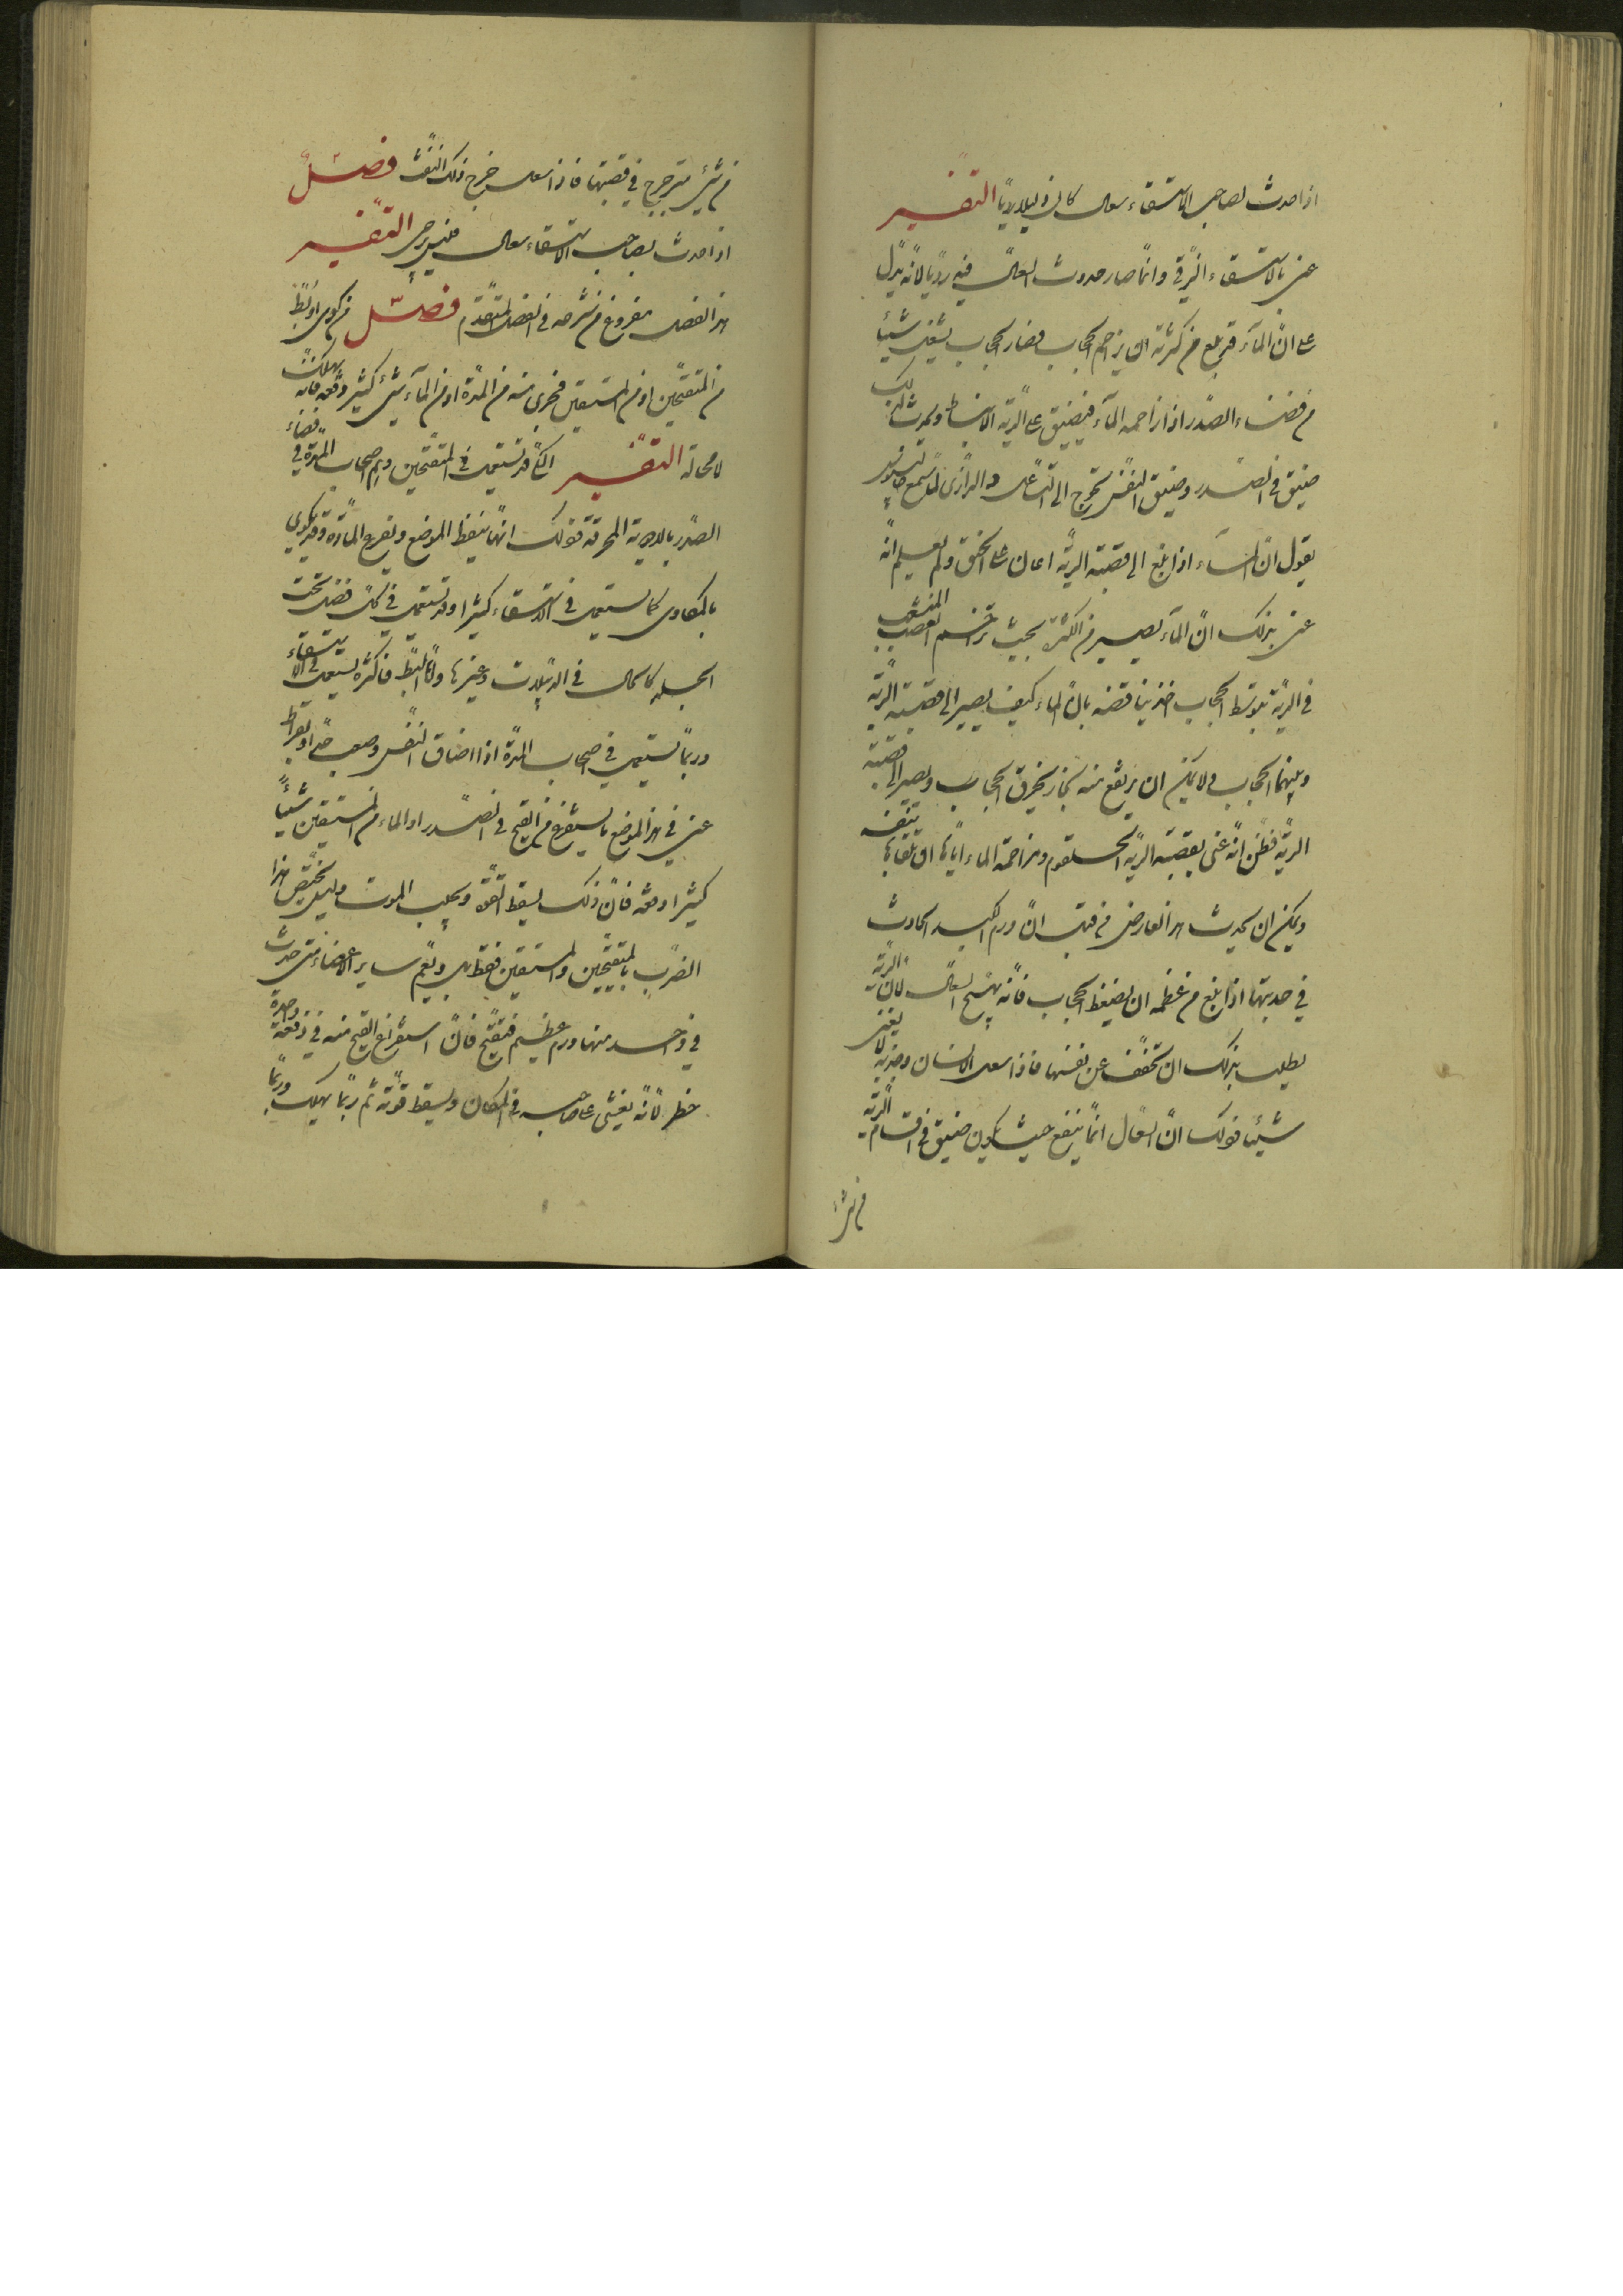 اذا حدث لصاحب الاستسقاء سعال كان دليلا رديا التفسير
عنى بالاستسقاء الزقى وانما صار حدوث السعال فيه رديا لانه يدل
على ان الماء قد بلغ من كثرته ان يزاحم الحجاب فصار الحجاب يشغل شيئا
من فضاء الصدر اذا زاحمه الماء فيضيق على الرية الانبساط ويحدث لذلك
ضيق فى الصدر وضيق النفس تحوج الى السعال والرازى لما سمع جالينوس
يقول ان الماء اذا بلغ الى قصبة الرية اعان على الخنق ولم يعلم انه
عنى بذلك ان الماء يصير من الكثرة بحيث يزاحم العصب المنشعب
فى الرية بتوسط الحجاب اخذ يناقضه بان الماء كيف يصير الى قصبة الرية
وبينهما الحجاب ولا يمكن ان يرتفع منه بخار يخرق الحجاب ويصير الى قصبة
الرية فظن انه عنى بقصبة الرية الحلقوم ومزاحمة الماء اياها ان يلقاها بنفسه
ويمكن ان يحدث هذا العارض من قبل ان ورم الكبد الحادث
فى حدبتها اذا بلغ من عظمه ان يضغط الحجاب فانه يهيج السعال لان الرية
تطلب بذلك ان تخفف عن نفسها فاذا سعل الانسان وجد به لا يغنى
شيئا فذلك ان السعال انما ينفع حيث يكون ضيق فى اقسام الرية
من شئ
من شئ يترجرج فى قصبتها فاذا سعل خرج ذلك النفث فصل
اذا حدث بصاحب الاستسقاء سعال فليس يرجى التفسير
هذا الفصل مفروغ من شرحه فى الفصل المتقدم فصل من كوى او بط
من المتقيحين او من المستسقين فجرى منه من المدة او من الماء شئ كثير دفعة فانه يهلك
لا محالة التفسير الكى قد تستعمل فى المتقيحين وهم اصحاب المدة فى فضاء
الصدر بالادوية المحرقة فذلك انها ينفظ الموضع ويفرغ المادة وقد يكوى
بالمكاوى كما يستعمل فى الاستسقاء كثيرا وقد تستعمل فى كل فضل تحت
الجلد كما كان فى الدبيلات وغيرها واما البط فاكثره يستعمل فى الاستسقاء
وربما يستعمل فى اصحاب المدة اذا اضاق النفس وصعب جدا وبقراط
عنى فى هذا الموضع ما يستفرغ من القيح فى الصدر او الماء من المستسقين شيئا
كثيرا دفعة فان ذلك يسقط القوة ويجلب الموت وليس يختص هذا
الضرب بالمتقيحين والمستسقين فقط بل ويعم ساير الاعضاء متى حدث
فى واحد منها ورم عظيم فتقيح فان استفراغ القيح منه فى دفعة واحدة
خطر لانه يغشى على صاحبه فى المكان ويسقط قوته ثم ربما يهلك وربما